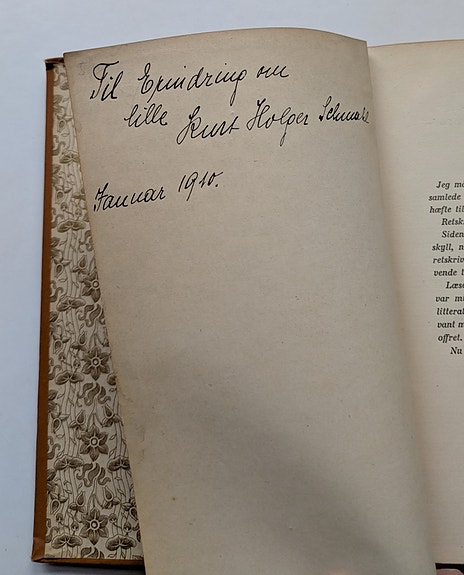 Til Erindring om
lille Kurt Holger
Januar 1910.
Jeg
samlede
hæfte til
Retsk
Siden
skyll,
retskriv
vende
Læse
var
litterat
vant
offret.
Nu